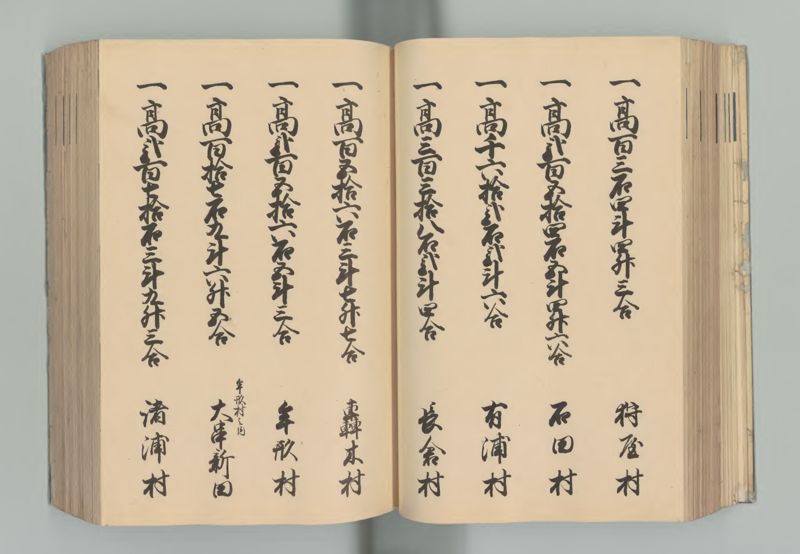 一高百三石四斗四升三合 狩屋村
一高弐百五拾四石五斗四升六合 石田村
一高千六拾弐石弐斗六合 有浦村
一高三百三拾八石弐斗四合 長倉村
一高百五拾六石三斗七升七合 轟木村
一高弐百五拾六石五斗三合 牟形村
牟形村之内
一高百拾七石九斗六升五合 大串新田
一高弐百七拾石三斗九升三合 諸浦村